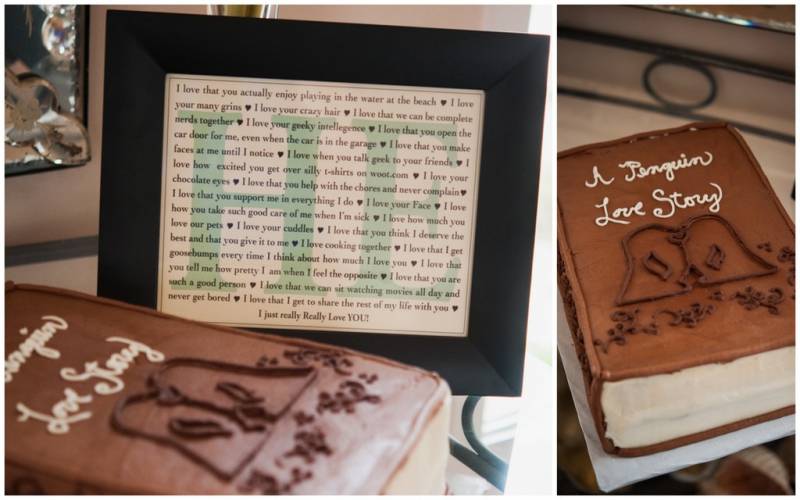 I love that you actually enjoy playing in the water at the beach ♥ I love
your many grins ♥ I love your crazy hair ♥ I love that we can be complete
nerds together ♥ I love your geeky intellegence ♥ I love that you open the
car door for me, even when the car is in the garage ♥ I love that you make
faces at me until I notice ♥ I love when you talk geek to your friends ♥ I
love how excited you get over silly t-shirts on woot.com ♥ I love your
chocolate eyes ♥ I love that you help with the chores and never complain♥
I love that you support me in everything I do ♥ I love your Face ♥ I love
how you take such good care of me when I'm sick ♥ I love how much you
love our pets ♥ I love your cuddles ♥ I love that you think I deserve the
best and that you give it to me ♥ I love cooking together ♥ I love that I get
goosebumps every time I think about how much I love you ♥ I love that
you tell me how pretty I am when I feel the opposite ♥ I love that you are
such a good person ♥ I love that we can sit watching movies all day and
never get bored ♥ I love that I get to share the rest of my life with you ♥
I just really Really Love YOU!
Penguin
Love Story
A Penguin
Love Story